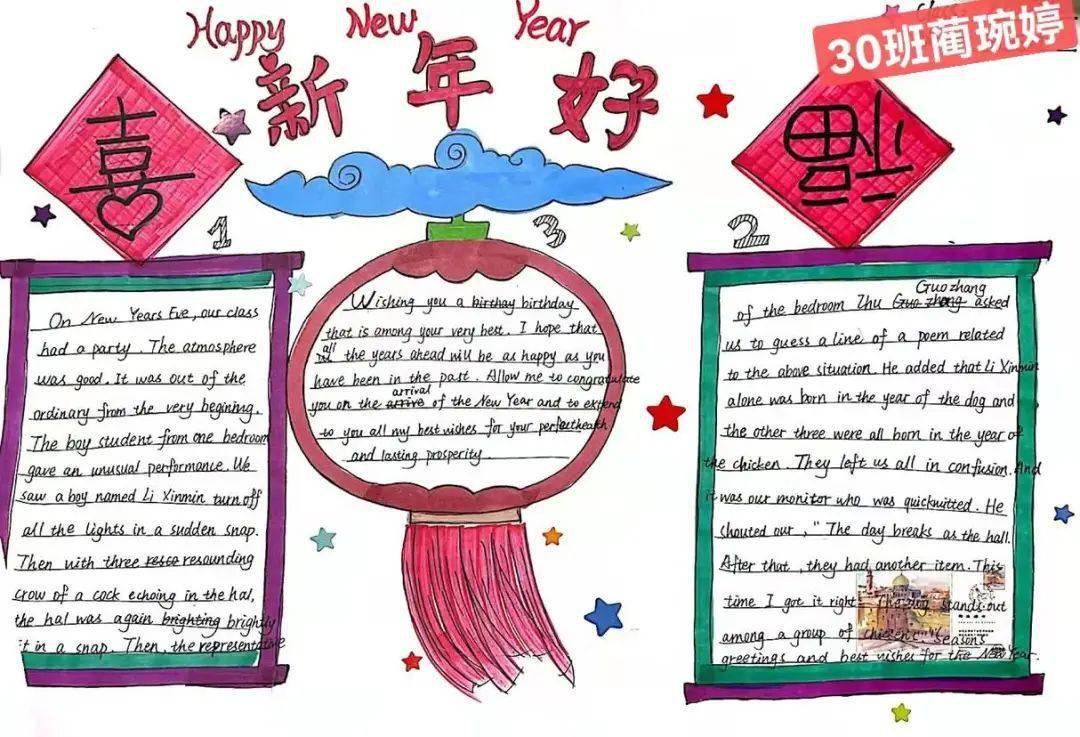 Happy New Year
Class
30班蔺琬婷
新年好
喜
福
1
On New Years Eve, our class
had a party. The atmosphere
was good. It was out of the
ordinary from the very begining.
The boy student from one bedroom
gave an unusual performance. We
saw a boy named Li Xinmin turn off
all the lights in a sudden snap.
Then with three resco resounding
crow of a cock echoing in the hal,
the hal was again brighting brightly
it in a snap. Then, the representative
3
Wishing you a birthay birthday
that is among your very best. I hope that
all
the years ahead will be as happy as you
have been in the past. Allow me to congratulate
arrival
you on the arrive of the New Year and to extend
to you all my best wishes for your perfect health
and lasting prosperity.
2
Guozhang
of the bedroom Zhu Guo zhang asked
us to guess a line of a poem related
to the above situation. He added that Li Xinmin
alone was born in the year of the dog and
the other three were all born in the year of
the chicken. They left us all in confusion. And
it was our monitor who was quickwitted. He
shouted our, "The day breaks as the hall.
After that, they had another item. This
time I got it right. The dog stands out
among a group of chickens" Seasons
greetings and best wishes for the New Year.